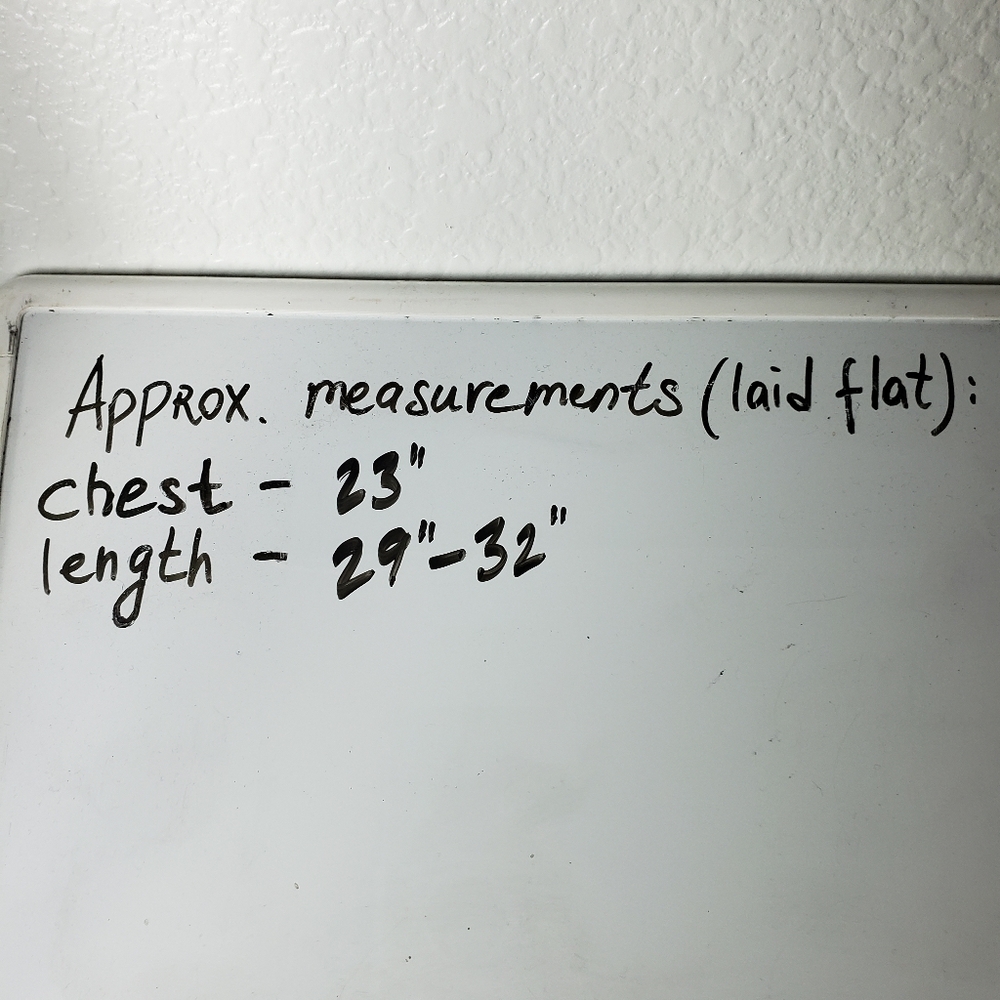 Approx. measurements (laid flat):
chest - 23"
length - 29"-32"